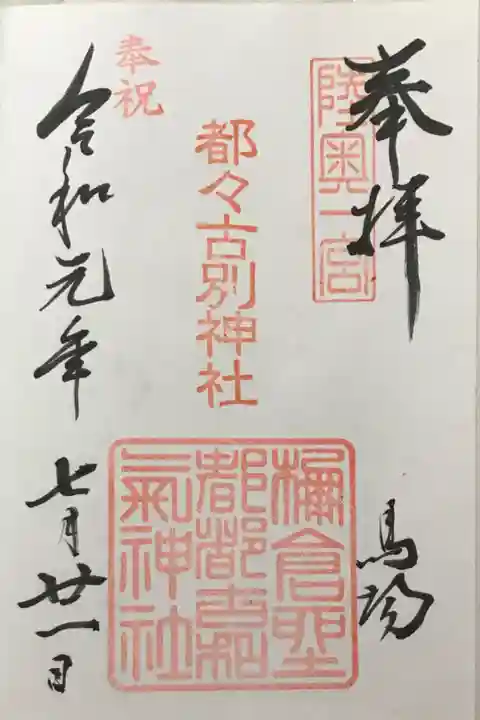 奉拝
陸奥一宮
馬場
都々古別神社
奉祝
令和元年
七月廿一日